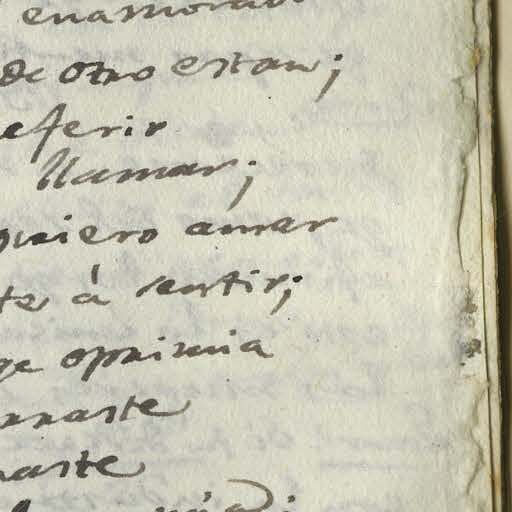 enamorad
de otro estan;
eferir
llamar;
quiero amar
te á sentir;
ge oprimia
rraste
aste